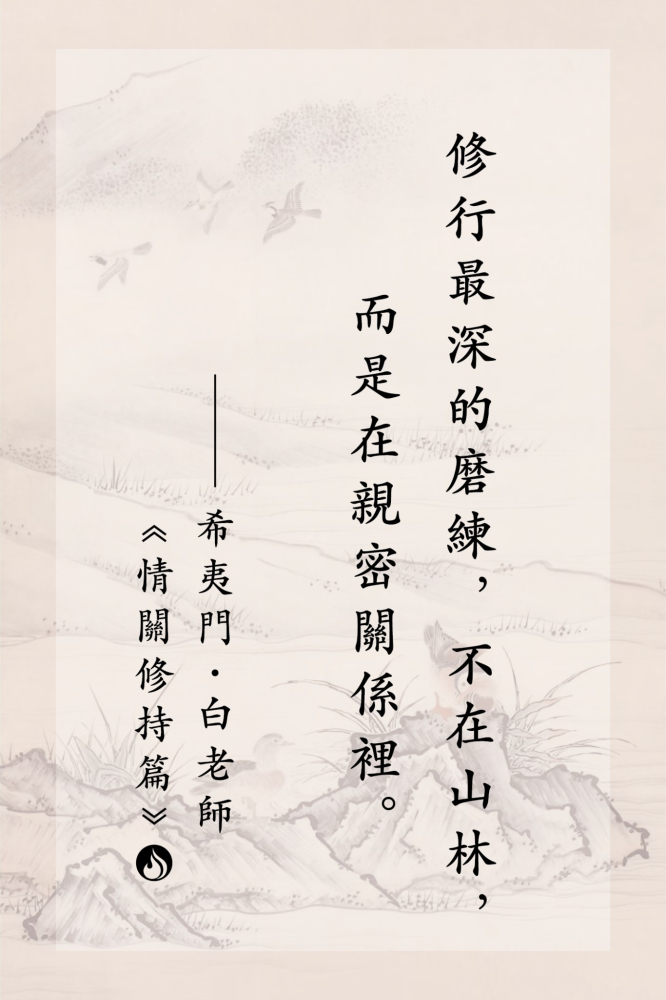 修行最深的磨練，不在山林，
而是在親密關係裡。
——希夷門·白老師
《情關修持篇》